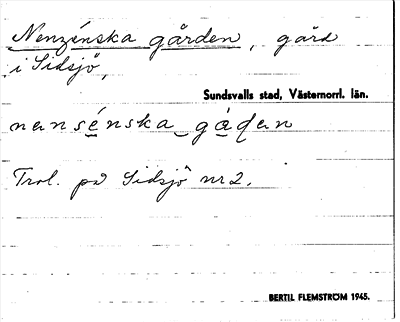 Nenzénska gården, gård
i Sidsjö,
Sundsvalls stad, Västernorrl. län.
nensénska gáḍan
Trol. på Sidsjö nr 2.
BERTIL FLEMSTRÖM 1945.